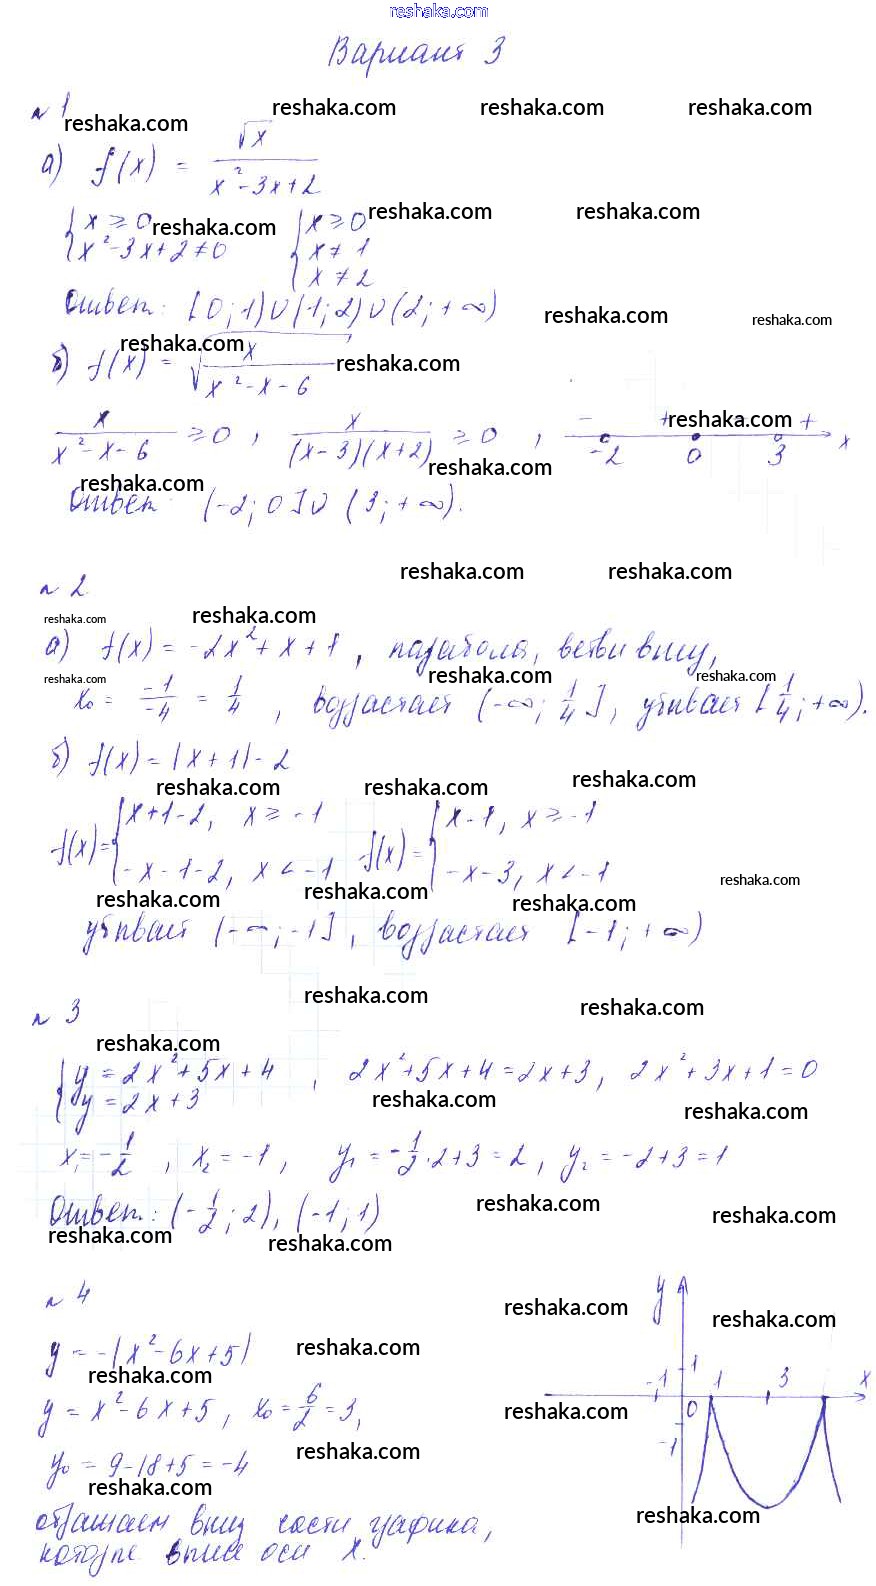 reshaka.com
Вариант 3
№ 1
reshaka.com reshaka.com reshaka.com reshaka.com
а) f(x) = √x / (x² - 3x + 2)
{ x ≥ 0 { x ≥ 0
reshaka.com reshaka.com reshaka.com
x² - 3x + 2 ≠ 0 x ≠ 1
x ≠ 2
Ответ: [0; 1) ∪ (1; 2) ∪ (2; +∞)
reshaka.com reshaka.com
б) f(x) = √(x / (x² - x - 6))
reshaka.com reshaka.com
x / (x² - x - 6) ≥ 0, x / ((x - 3)(x + 2)) ≥ 0, - + - + x
-2 0 3
reshaka.com reshaka.com reshaka.com
Ответ: (-2; 0] ∪ (3; +∞).
reshaka.com reshaka.com
№ 2
reshaka.com reshaka.com
а) f(x) = -2x² + x + 1, парабола, ветви вниз,
reshaka.com reshaka.com reshaka.com
x₀ = -1/-4 = 1/4, возрастает (-∞; 1/4], убывает [1/4; +∞).
б) f(x) = |x + 1| - 2
reshaka.com reshaka.com reshaka.com
f(x) = { x + 1 - 2, x ≥ -1 f(x) = { x - 1, x ≥ -1
-x - 1 - 2, x < -1 -x - 3, x < -1
reshaka.com reshaka.com reshaka.com reshaka.com
убывает (-∞; -1], возрастает [-1; +∞)
reshaka.com reshaka.com
№ 3
reshaka.com
{ y = 2x² + 5x + 4, 2x² + 5x + 4 = 2x + 3, 2x² + 3x + 1 = 0
y = 2x + 3
reshaka.com reshaka.com
x₁ = -1/2, x₂ = -1, y₁ = -1/2 · 2 + 3 = 2, y₂ = -2 + 3 = 1
Ответ: (-1/2; 2), (-1; 1)
reshaka.com reshaka.com reshaka.com reshaka.com
№ 4
reshaka.com reshaka.com
y = -|x² - 6x + 5|
reshaka.com reshaka.com
y = x² - 6x + 5, x₀ = 6/2 = 3,
reshaka.com reshaka.com
y₀ = 9 - 18 + 5 = -4
reshaka.com reshaka.com
отражаем вниз части графика,
которые выше оси x.
y
1
-1 1 3 x
0
-1